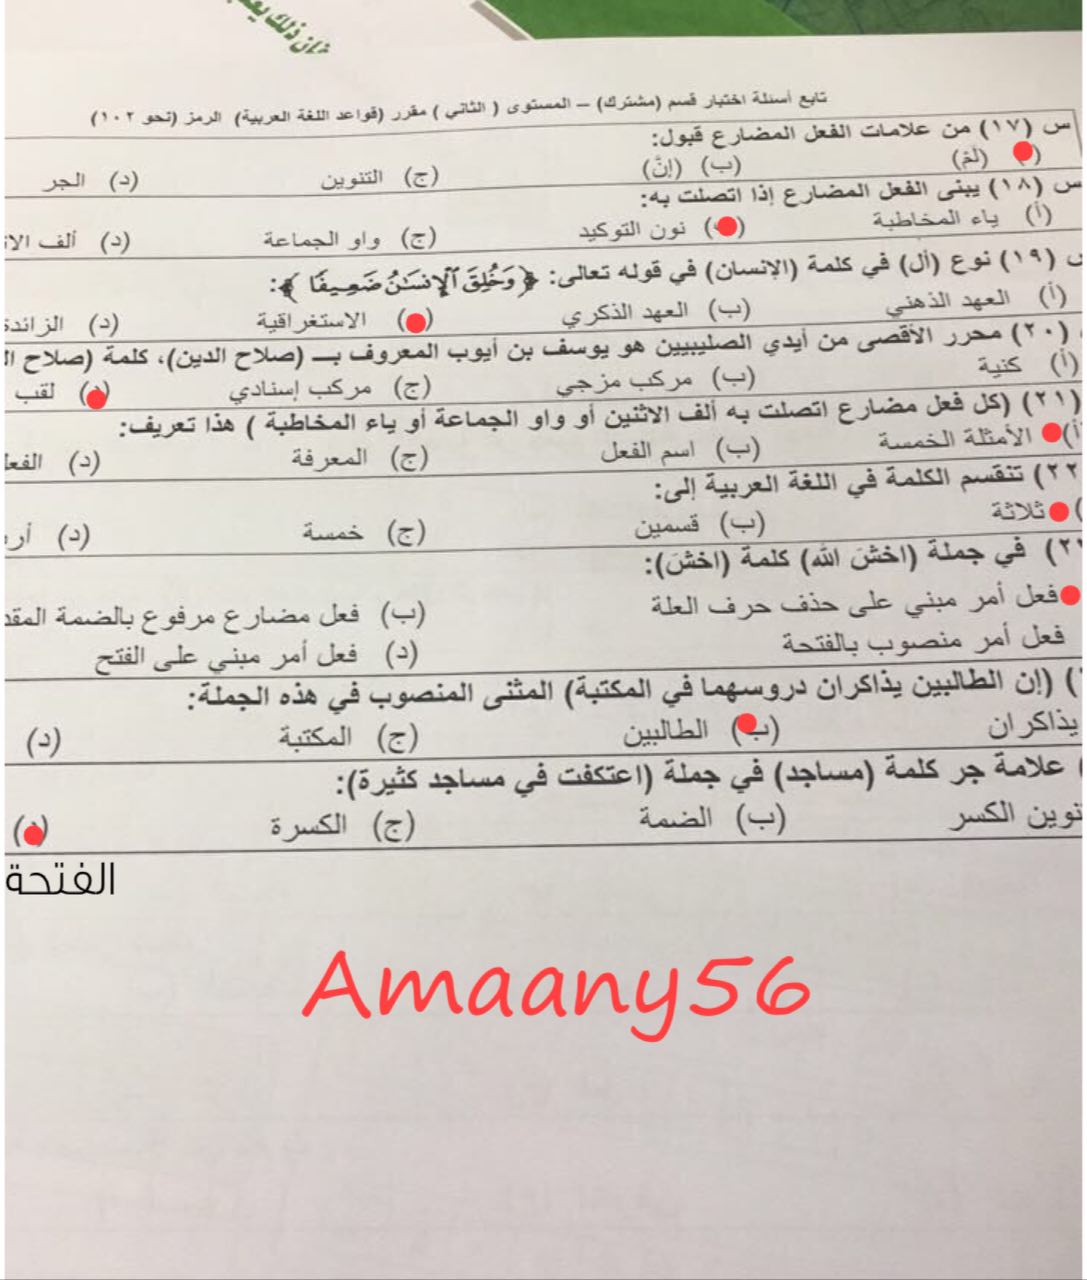 فإن ذلك
تابع أسئلة اختبار قسم (مشترك) – المستوى ( الثاني ) مقرر (قواعد اللغة العربية) الرمز (نحو ١٠٢)
س (١٧) من علامات الفعل المضارع قبول:
(لَمْ) (ب) (إنَّ) (ج) التنوين (د) الجر
س (١٨) يبنى الفعل المضارع إذا اتصلت به:
(أ) ياء المخاطبة (ب) نون التوكيد (ج) واو الجماعة (د) ألف
(١٩) نوع (أل) في كلمة (الإنسان) في قوله تعالى: ﴿وَخُلِقَ ٱلْإِنسَٰنُ ضَعِيفًا﴾:
(أ) العهد الذهني (ب) العهد الذكري ( ) الاستغراقية (د) الزائدة
(٢٠) محرر الأقصى من أيدي الصليبيين هو يوسف بن أيوب المعروف بـ (صلاح الدين)، كلمة (صلاح
(أ) كنية (ب) مركب مزجي (ج) مركب إسنادي (د) لقب
(٢١) (كل فعل مضارع اتصلت به ألف الاثنين أو واو الجماعة أو ياء المخاطبة ) هذا تعريف:
(أ) الأمثلة الخمسة (ب) اسم الفعل (ج) المعرفة (د)
٢٢) تنقسم الكلمة في اللغة العربية إلى:
ثلاثة (ب) قسمين (ج) خمسة (د)
في جملة (اخشَ الله) كلمة (اخشَ):
فعل أمر مبني على حذف حرف العلة (ب) فعل مضارع مرفوع بالضمة
فعل أمر منصوب بالفتحة (د) فعل أمر مبني على الفتح
(إن الطالبين يذاكران دروسهما في المكتبة) المثنى المنصوب في هذه الجملة:
يذاكران (ب) الطالبين (ج) المكتبة (د)
علامة جر كلمة (مساجد) في جملة (اعتكفت في مساجد كثيرة):
تنوين الكسر (ب) الضمة (ج) الكسرة (د)
الفتحة
Amaany56